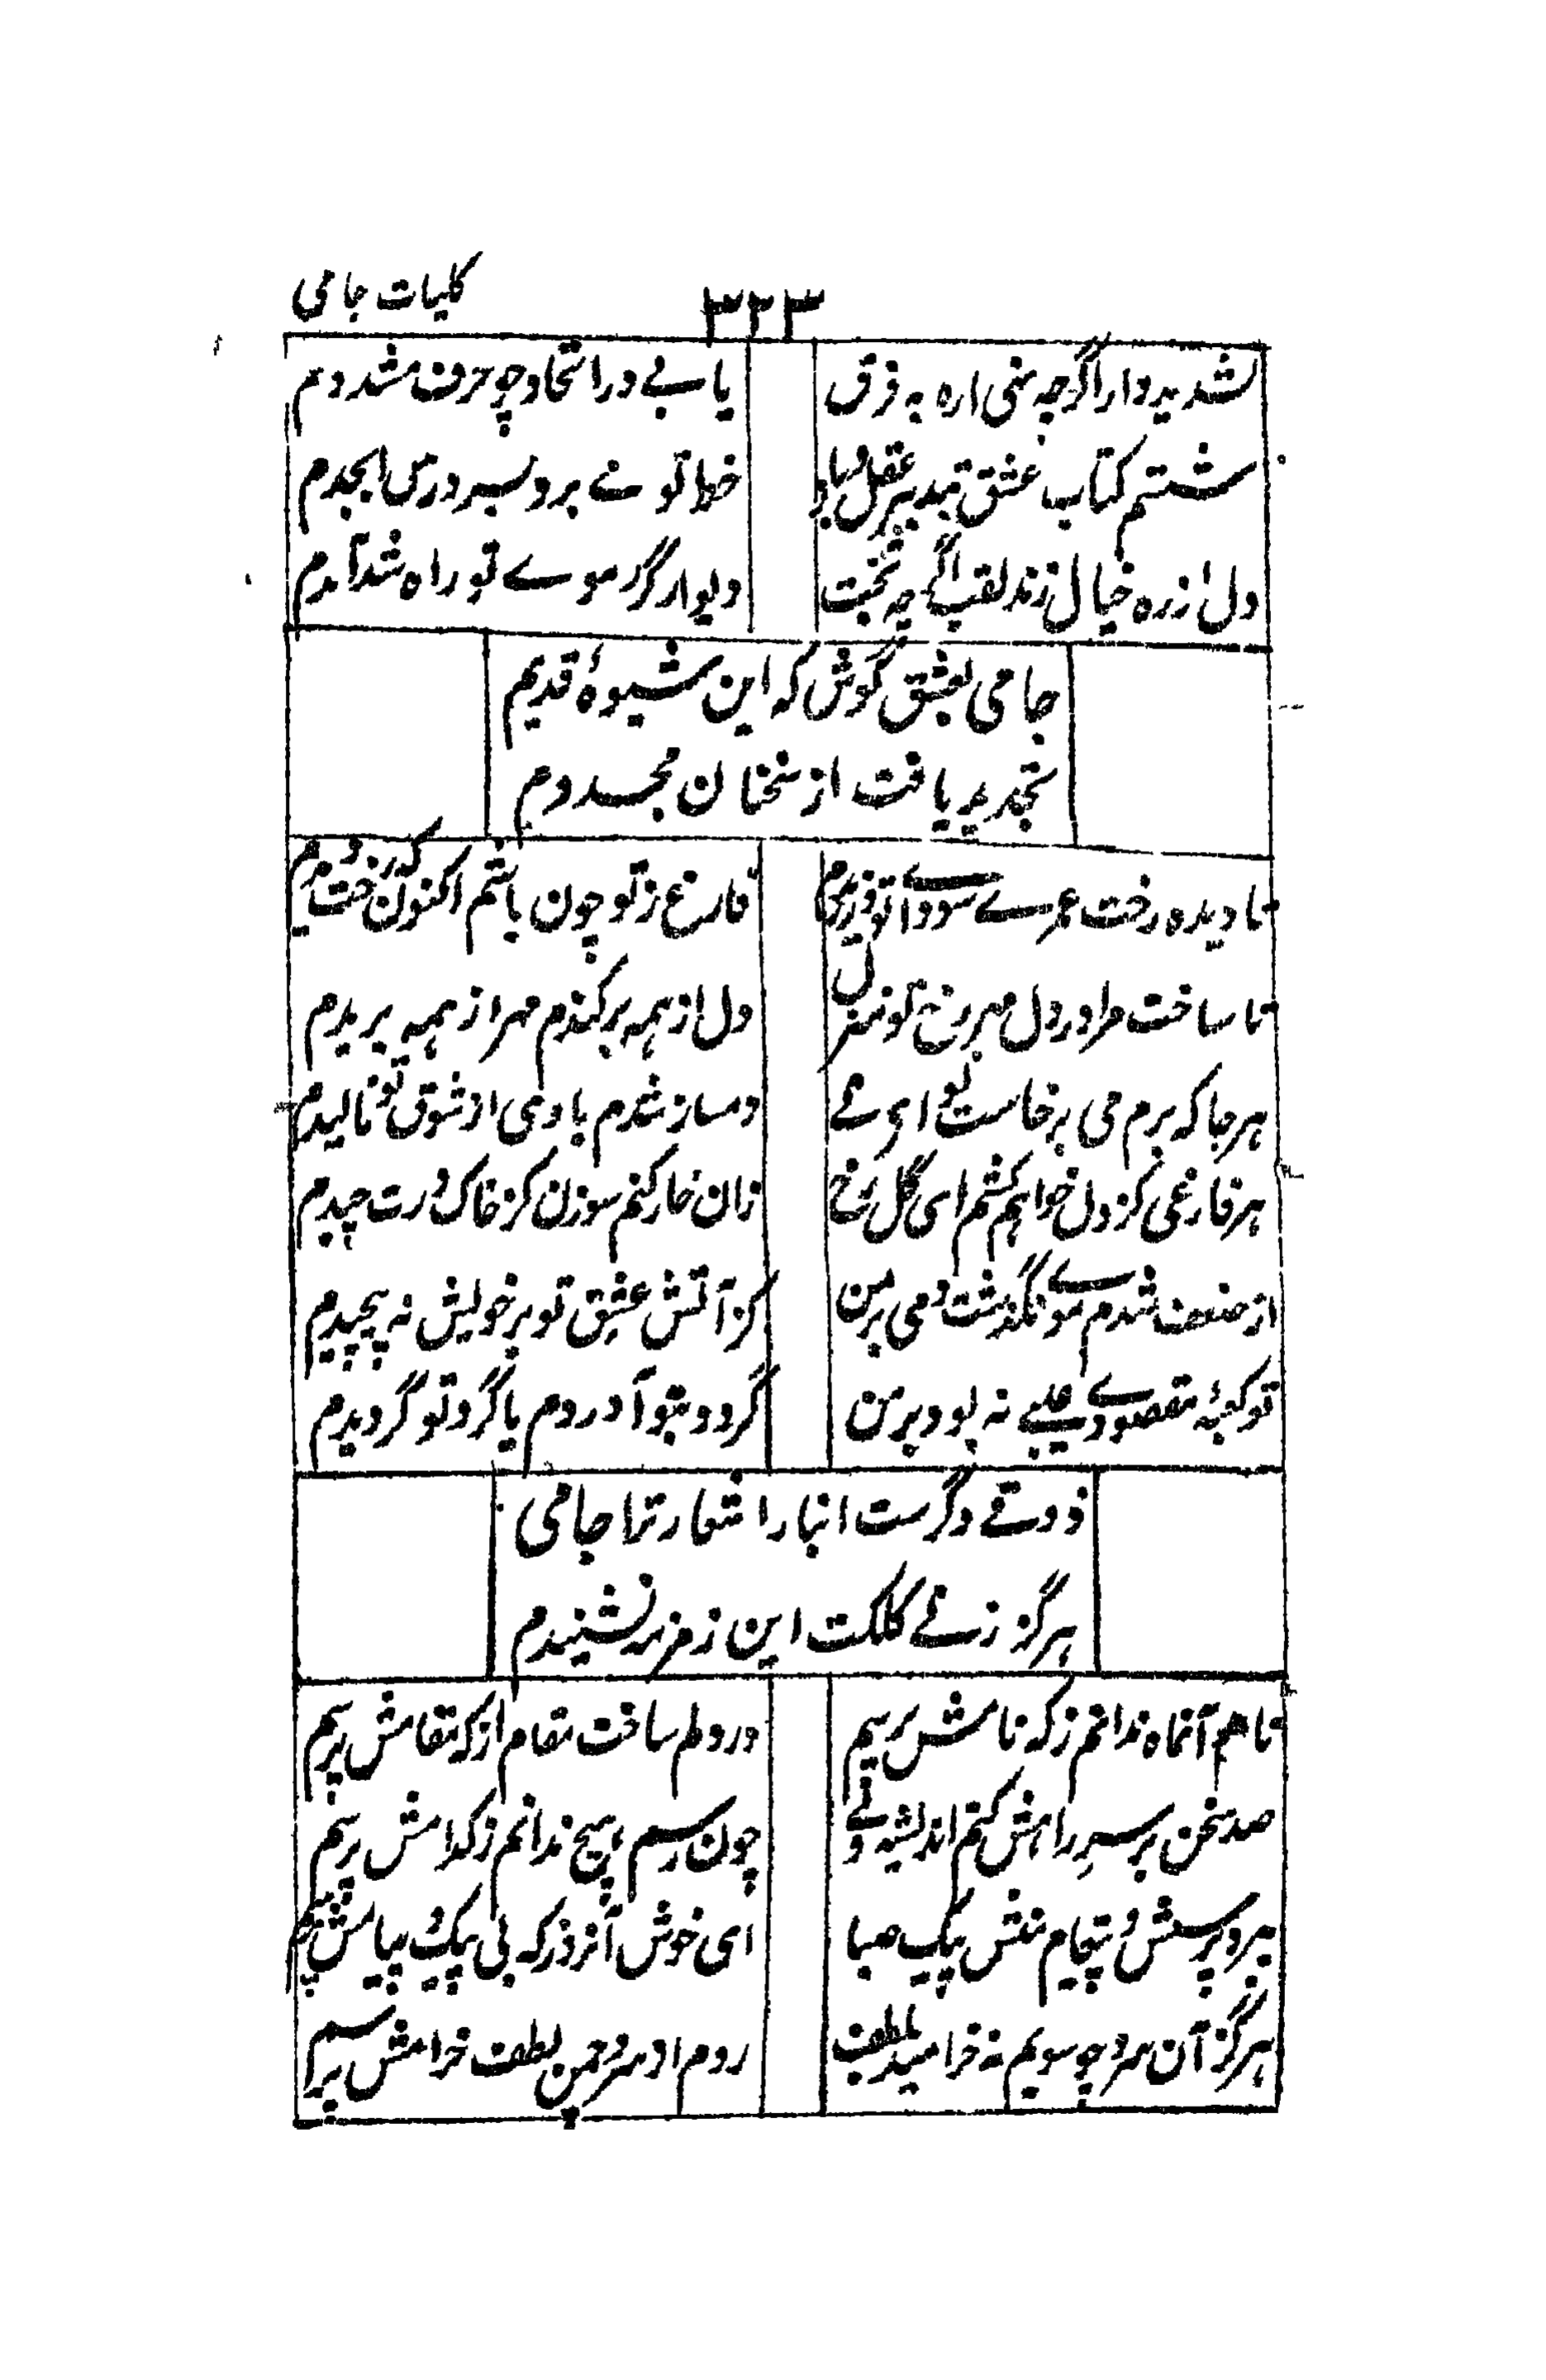 کلیات جامی
۳۳۳
تشدیدوار اگرچه نهی اره به فرق
یابے در اتحاد چو حرف مشددم
شستم کتاب عشق تدبیر عقل
خط تو نے برد بسر درس ابجدم
دل از ره خیال زند نقب اگرچه تخت
دیوار گر موے تو راه شد آمدم
جامی بعشق کوش که این شیوهٔ قدیم
تجدید یافت از سخنان مجددم
نادیده رخت عمرے سودائے تو ورزیدم
فارغ ز تو چون باشم اکنون که رخت دیدم
تا ساخت مرا در دل مهر رخ تو منزل
دل از همه برکندم مهر از همه ببریدم
هر جا که برم می برخاست تو ای نے
دمساز شدم با وی از شوق تو نالیدم
هر خاری کز دل خواهم کشم ای گل رخ
زان خار کنم سوزن کز خاک درت چیدم
از ضعف شدم موئے نگذشت دمی بر من
کز آتش عشق تو بر خویش نه پیچیدم
تو کعبهٔ مقصودے عیبے نه بود بر من
گر رو بتو آوردم یا گرد تو گردیدم
ذوقے دگرست اینبار اشعار ترا جامی
هرگز ز نے کلکت این زمزمه نشنیدم
نام آن ماه ندانم ز که نامش پرسم
در دلم ساخت مقام از که مقامش پرسم
صد سخن بر سر راهش کنم اندیشه ولے
چون رسم هیچ ندانم ز کدامش پرسم
میبرد پرسش و پیغام منش پیک صبا
ای خوش آنروز که بی پیک و پیامش پرسم
هرگز آن سرو چو سویم نه خرامید بلطف
روم از سرو چمن لطف خرامش پرسم